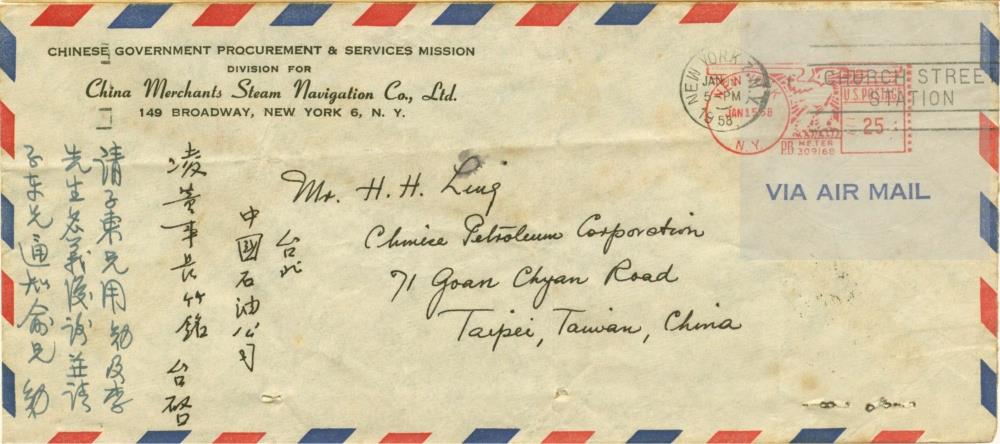 CHINESE GOVERNMENT PROCUREMENT & SERVICES MISSION
DIVISION FOR
China Merchants Steam Navigation Co., Ltd.
149 BROADWAY, NEW YORK 6, N. Y.
NEW YORK 7, N.Y.
JAN
5 - PM
1958
CHURCH STREET
STATION
NEW YORK
JAN 15 58
N.Y.
U.S. POSTAGE
25
P.B. METER
309168
VIA AIR MAIL
Mr. H. H. Ling
Chinese Petroleum Corporation
71 Goan Chyan Road
Taipei, Taiwan, China
台北
中國石油公司
凌董事長竹銘 台啓
請子東兄用勉及李
先生名義復謝並請
子東兄通知俞兄 勉